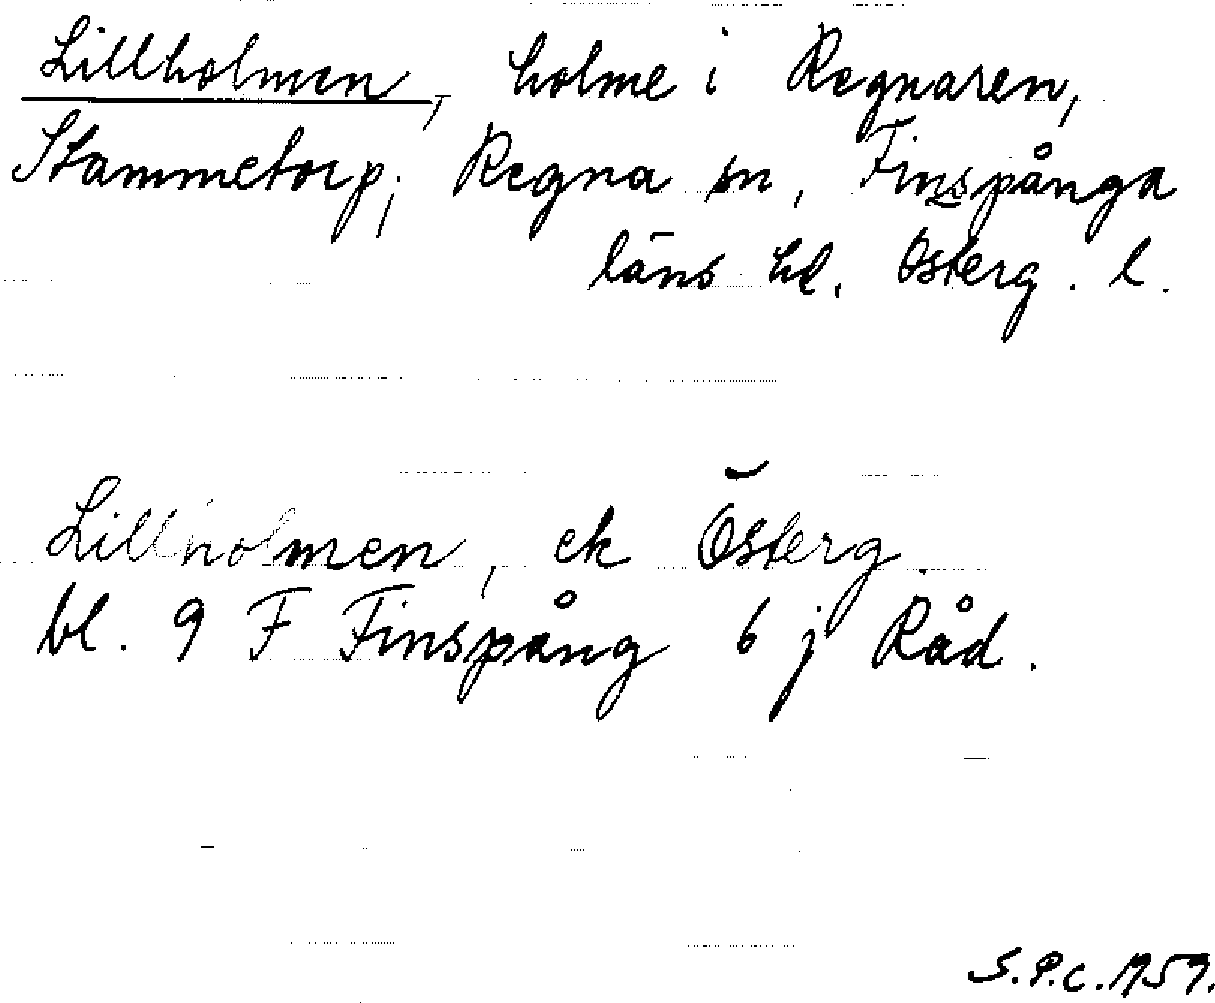 Lillholmen, holme i Regnaren,
Stammetorp, Regna sn, Finspånga
läns hd. Österg. l.
Lillholmen, ek Österg.
bl. 9 F Finspång 6 j Råd.
S.P.C. 1959.